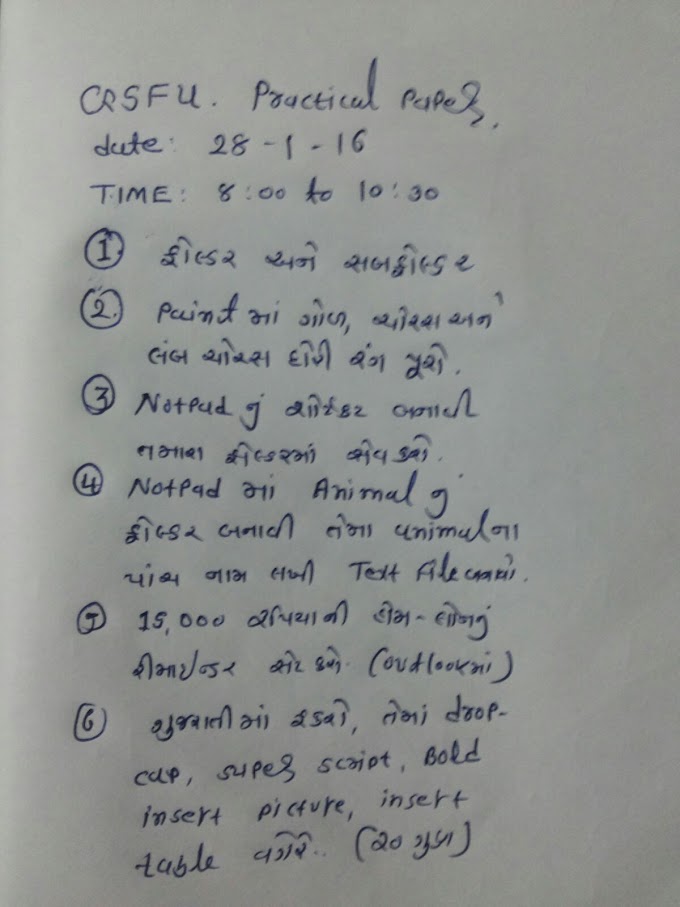 CRSFU. Practical Paper,
date: 28-1-16
TIME: 8:00 to 10:30
① ફોલ્ડર અને સબફોલ્ડર
②. Paintમાં ગોળ, ચોરસ અને
લંબ ચોરસ દોરી રંગ પૂરો.
③ NotPadનું શોર્ટકટ બનાવી
તમારા ફોલ્ડરમાં સેવ કરો.
④ NotPad માં Animalનું
ફોલ્ડર બનાવી તેમા animalના
પાંચ નામ લખી Text File બનાવો.
⑤ 15,000 રૂપિયાની હોમ-લોનનું
રીમાઇન્ડર સેટ કરો. (outlookમાં)
⑥ ગુજરાતીમાં કરો, તેમાં drop-
cap, super script, Bold
insert picture, insert
table વગેરે.. (૨૦ ગુણ)